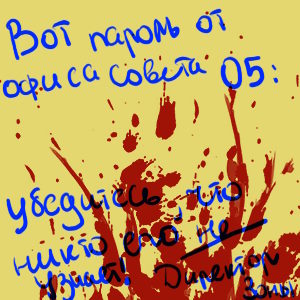 Вот пароль от
офиса совета О5:
убедитесь, что
никто его не
узнай! Директор
Зоны